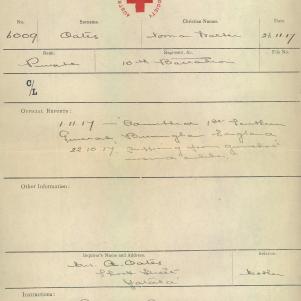 SOCIETY
No.
Surname.
Christian Names.
6009
Oates
Norman Walter
26.11.17
Rank.
Regiment, &c.
File No.
Private
10th Battalion
C/L
OFFICIAL REPORTS:
1.11.17 Southern
General, Birmingham England
22.10.17. Suffering from gunshot
wound
Other Information:
Inquirer's Name and Address.
Relation.
Mr. A. Oates
Mother
Street
Instructions: